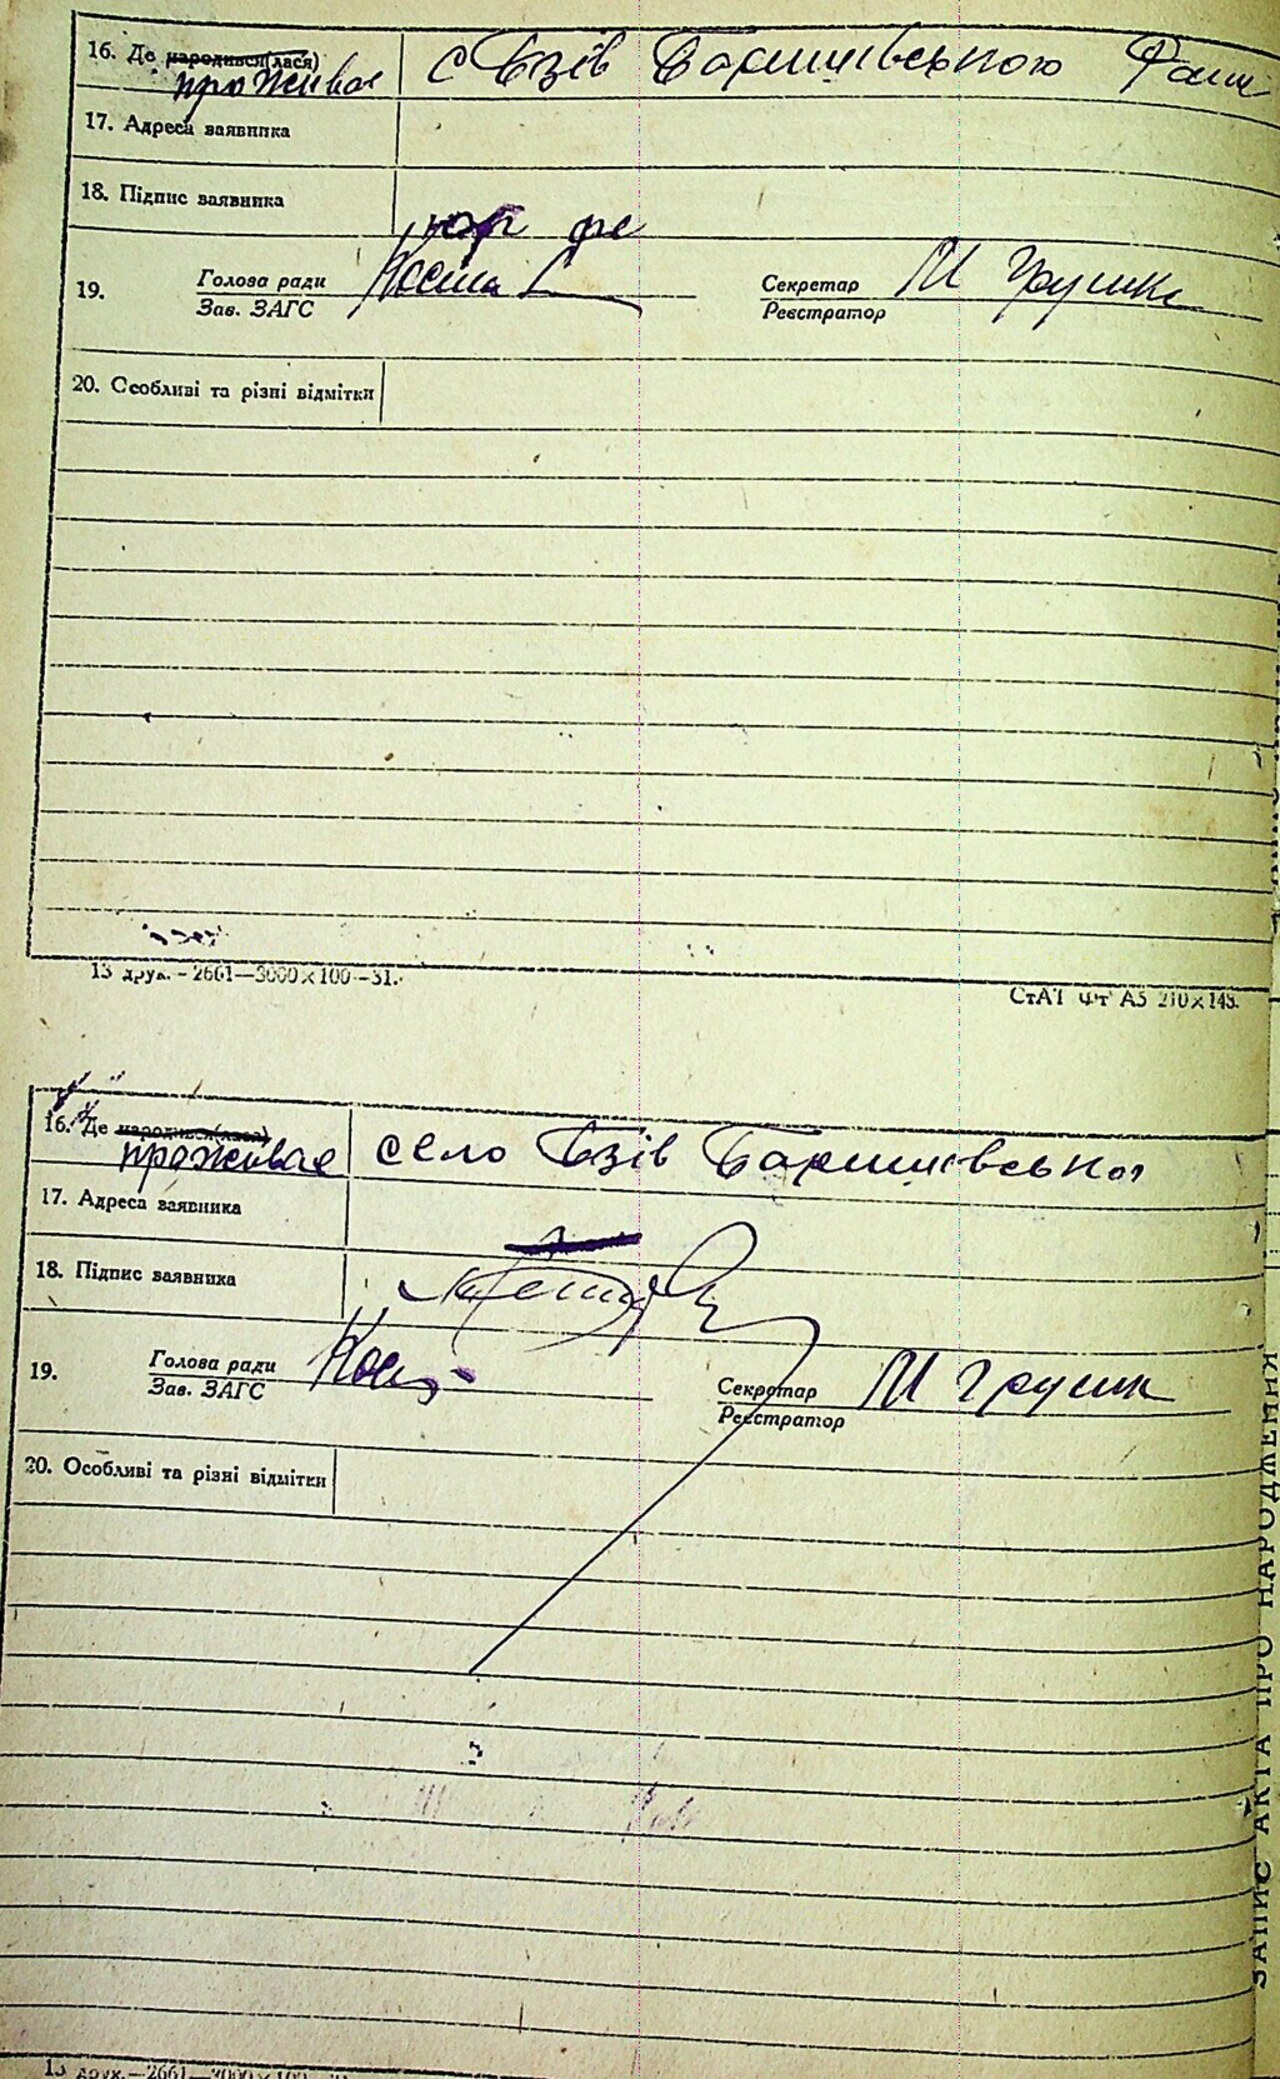 16. Де народився(лася)
проживає с Бзів Баришівського Рай
17. Адреса заявника
18. Підпис заявника
19. Голова ради Секретар М Грушк
Зав. ЗАГС Реєстратор
20. Особливі та різні відмітки
13 друк. - 2661—3000×100—31.
СтАТ Фт А5 210×148.
16. Де народився(лася)
проживає село Бзів Баришівсько
17. Адреса заявника
18. Підпис заявника
19. Голова ради Секретар М Грушк
Зав. ЗАГС Реєстратор
20. Особливі та різні відмітки
ЗАПИС АКТА ПРО НАРОДЖЕННЯ
13 друк.—2661—3000×100